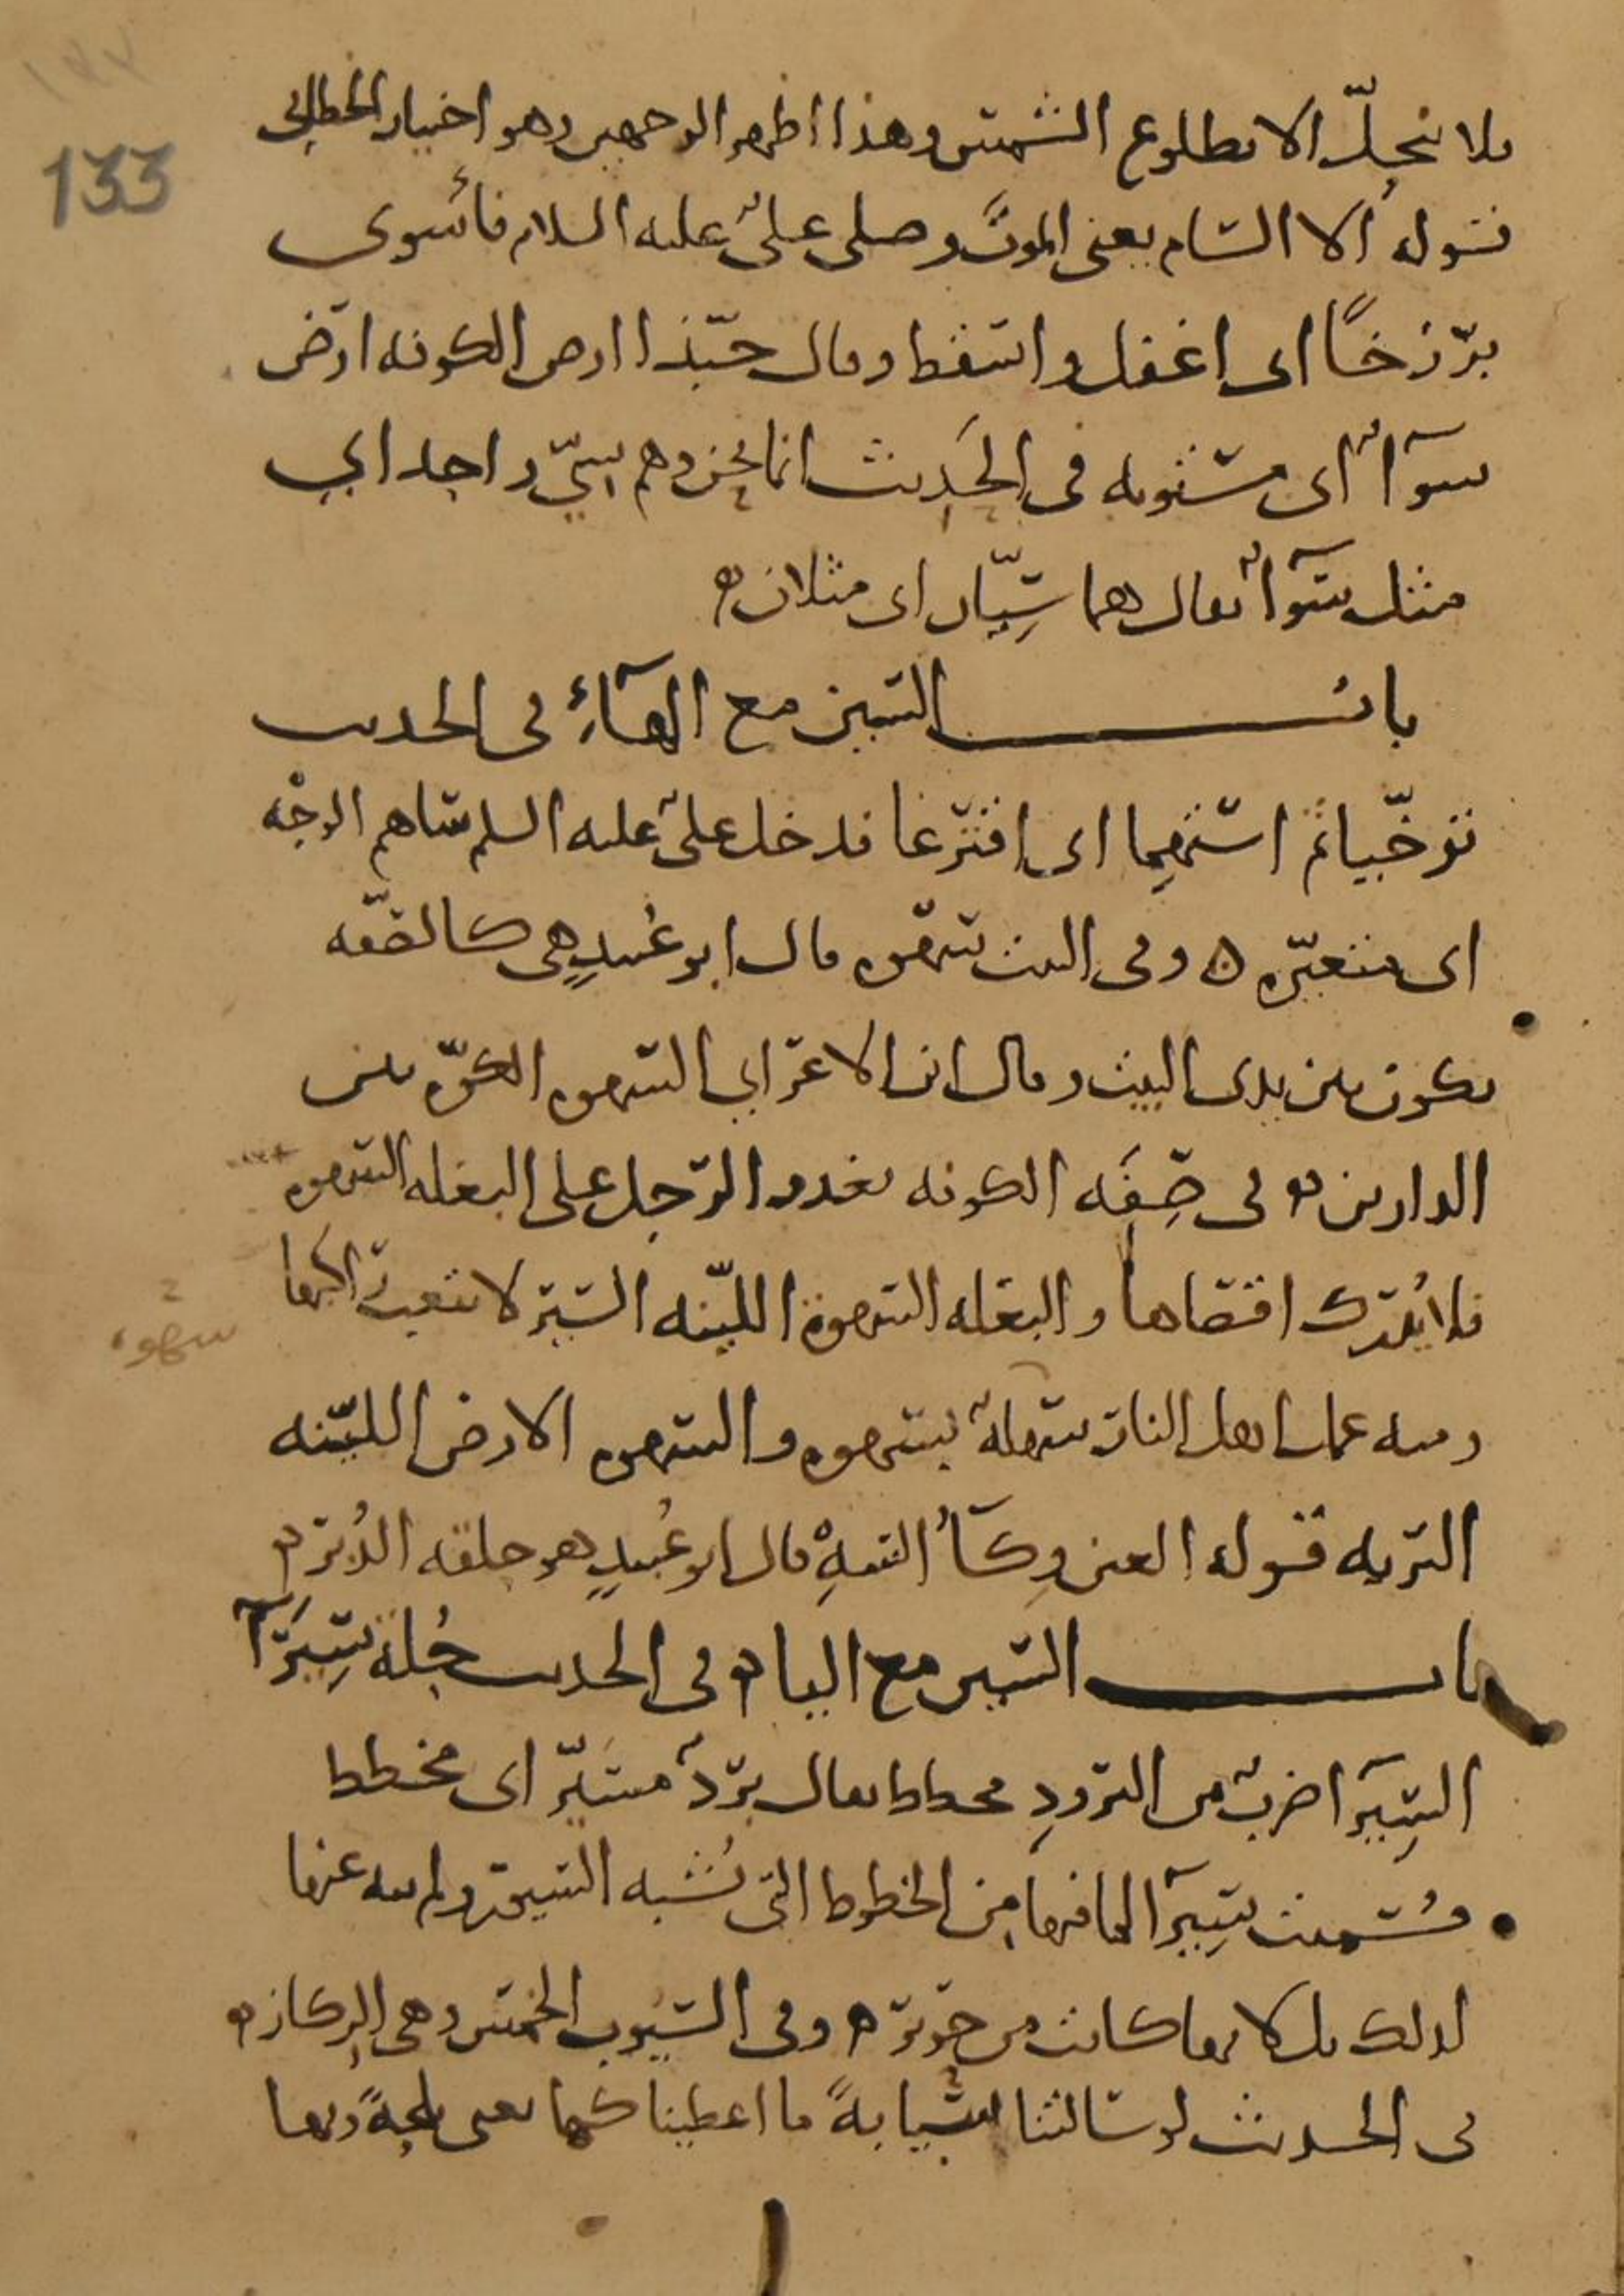 133
فلا تحل الا بطلوع الشمس وهذا اظهر الوجهين وهو اختيار الخطابي
قوله الا السام يعني الموت وصلى علي عليه السلام فأسوى
برزخًا اى اغفل واسقط وقال حبّذا ارض الكوفه ارض
سوآء اى مستويه فى الحديث انما نحن وهم سيّ واحد اي
مثل سوآء يقال هما سيّان اى مثلان ه
باب السين مع الهآء فى الحديث
توخّيا ثم استهما اى اقترعا فدخل علىّ عليه السلم ساهم الوجه
اى متغيّره ه وفى البيت سهوه قال ابو عُبيدٍ هى كالصّفه
تكون بين يدى البيت وقال ابن الاعرابي السهوه الكوّه بين
الدارين ه فى صِفَه الكوفه يغدو الرّجل على البغله السهوه
فلا يُدرك اقصاها والبغله السهوة اللّينه السّير لا تتعب راكبها
سهوه
ومنه عمل اهل النار سهلة بسهوه والسهوه الارض الليّنه
التربه قوله العين وِكَآءُ السَهِ قال ابو عُبيدٍ هو حلقه الدُبُر ه
باب السين مع اليا ه فى الحديث حُلة سِيَرَآ
السِيَرَآ ضربٌ من البرودِ مخطط يقال بردٌ مسيّر اى مخطط
وسُميت سِيَرَآ لما فيها من الخطوط التى تُشبه السيور ولم ينه عنها
لذلك بل لانها كانت من حرير ه وفى السّيُوب الخمس وهى الركاز ه
فى الحديث لو سالتنا سيابةً ما اعطيناكها يعني بلحةً وبها